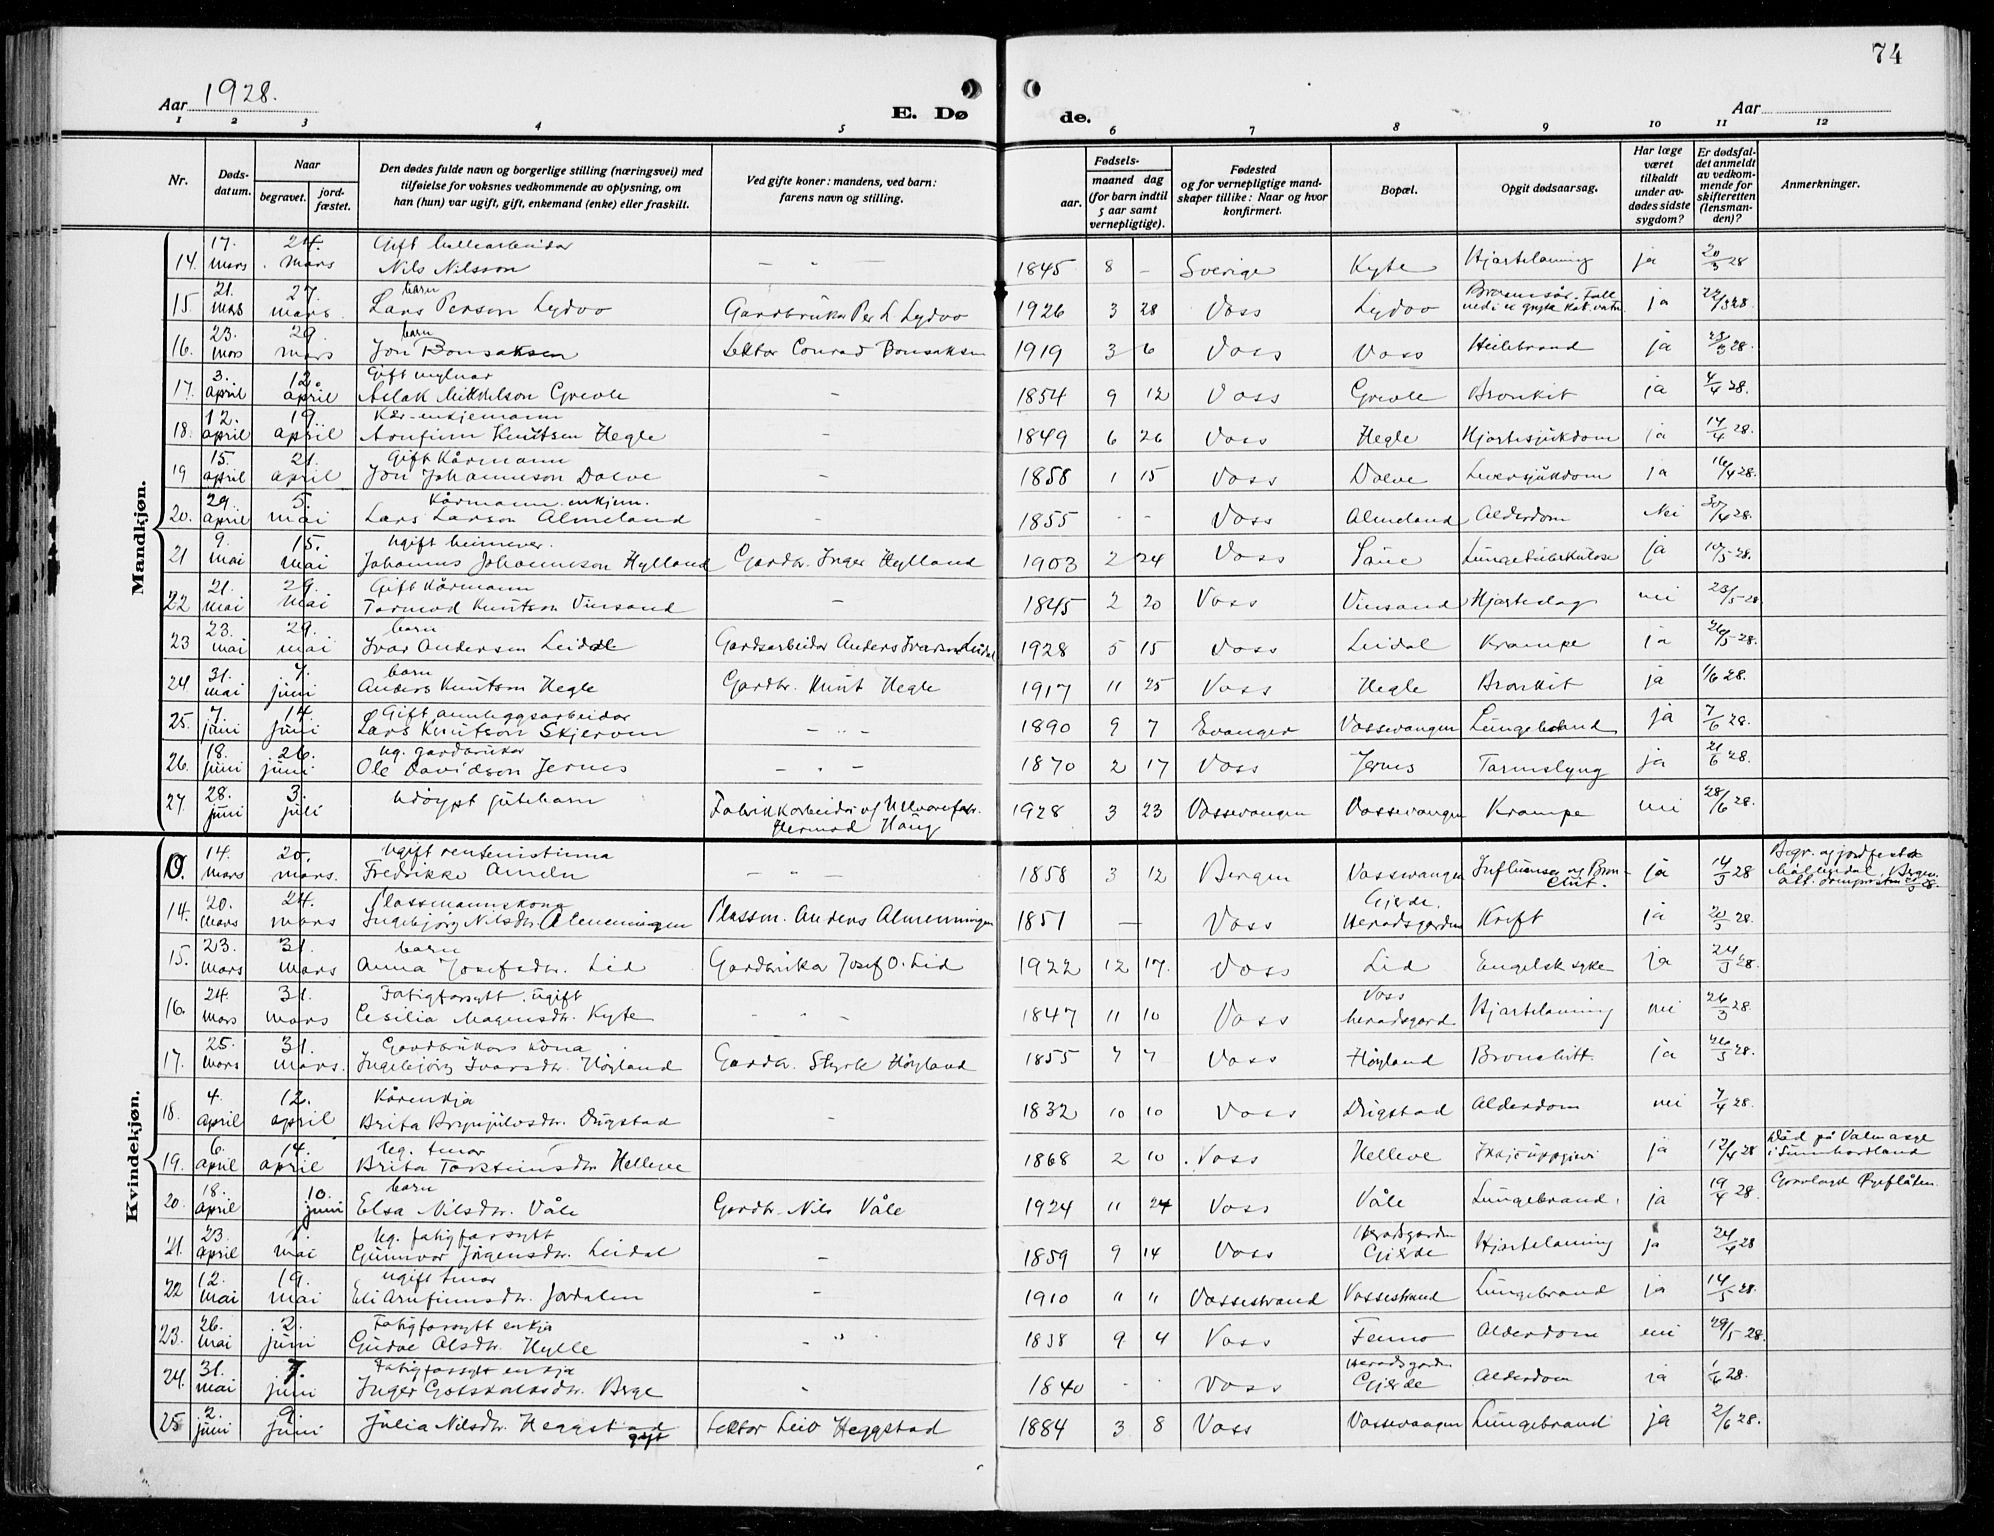 74
Aar 1928.
E. Dø
de.
Aar
1 2 3 4 5 6 7 8 9 10 11 12
Nr.
Døds-
datum.
Naar
begravet.
jord-
fæstet.
Den dødes fulde navn og borgerlige stilling (næringsvei) med
tilføielse for voksnes vedkommende av oplysning, om
han (hun) var ugift, gift, enkemand (enke) eller fraskilt.
Ved gifte koner: mandens, ved barn:
farens navn og stilling.
Fødsels-
aar.
maaned dag
(for barn indtil
5 aar samt
vernepligtige).
Fødested
og for vernepligtige mand-
skaper tillike: Naar og hvor
konfirmert.
Bopæl.
Opgit dødsaarsag.
Har læge
været
tilkaldt
under av-
dødes sidste
sygdom?
Er dødsfal-
det anmeldt
av vedkom-
mende for
skifteretten
(lensman-
den)?
Anmerkninger.
Mandkjøn.
17. 24. Gift
14. mars mars Nils Nilsson — „ — 1845 8 – Sverige Kyte Hjartelaming ja 20/3 28
21. 27. barn
15. mars mars. Lars Person Lydvo Gardbrukar Per L Lydvo 1926 3 28 Voss Lydvo Brannsår. Fall ja 22/3 28
23. 29. barn
16. mars mars Jon Bonsaksen Lektor Conrad Bonsaksen 1919 3 6 Voss Voss Heilebrand ja 23/3 28.
3. 12. Gift mylnar
17. april april Aslak Mikkelson Greve – 1854 9 12 Voss Greve Bronkit ja 4/4 28.
12. 19. Kår-enkjemann
18. april april Arnfinn Knutsen Hegle – 1849 6 26 Voss Hegle Hjartesjukdom ja 14/4 28.
15. 21. Gift Kårmann
19 april april Jon Johannson Dolve – 1858 1 15 Voss Dolve Leversjukdom ja 16/4 28.
29. 5. Kårmann, enkjem.
20. april mai Lars Larson Almeland – 1855 – – Voss Almeland Alderdom Nei 30/4 28.
9. 15. Ugift heimever.
21 mai mai Johannes Johannson Hylland Gardbr. Inger Hylland 1903 2 24 Voss Saue Lungetuberkulose ja 10/5 28.
21. 29. Gift Kårmann
22 mai mai Tormod Knutson Vinsand – 1845 2 20 Voss Vinsand Hjarteslag nei 23/5 28
23. 29. barn
23 mai mai Ivar Andersen Leidal Gardsarbeidar Anders Ivarson Leidal 1928 5 15 Voss Leidal Krampe ja 26/5 28.
31. 7. barn
24 mai juni Anders Knutson Hegle Gardbr. Knut Hegle 1917 11 25 Voss Hegle Bronkit ja 1/6 28.
7 14 Gift anleggsarbeidar
25. juni juni Lars Knutson Skjerven – „ – 1890 9 7 Evanger Vossevangen Lungebrand ja 7/6 28.
18. 26. Ug. gardbrukar
26. juni juni Ole Davidson Jernes – „ – 1870 2 17 Voss Jernes Tarmslyng ja 21/6 28.
28. 3.
27. juni juli Udøypt gutebarn Fabrikkarbeidar Hermod Haug 1928 3 23 Vossevangen Vossevangen Krampe nei 28/6 28.
Kvindekjøn.
14. 20. Ugift rentenistinna
0. mars mars. Fredrikke Ameln — „ — 1858 3 12 Bergen Vossevangen Influensa og Bron- ja 14/3 28
20. 24. Plassmannskona Gjerde.
14. mars mars Ingebjørg Nilsdtr. Almenningen Plassm. Anders Almenningen 1851 — Voss Heradsgarden Kreft ja 20/3 28.
23. 31. barn
15. mars mars Anna Josefsdtr. Lid Gardbrukar Josef O. Lid 1922 12 17. Voss Lid Engelsk syke ja 24/3 28.
24. 31. Fatigforsytt, ugift Voss
16. mars mars Cesilia Magnusdtr. Kyte – „ – 1847 11 10 Voss heradsgard Hjartelaming nei 26/3 28.
25. 31. Gardbrukars kona
17. mars mars. Ingebjørg Ivarsdtr. Høyland Gardbr. Styrk Høyland 1855 7 7 Voss Høyland Bronchitt. ja 26/3 28.
4. 12. Kårenkja
18. april april Brita Brynjulvsdtr. Dugstad – 1832 10 10 Voss Dugstad Alderdom nei 7/4 28.
6. 14. Ug. tenar Død på Valen asyl
19. april april Brita Torsteinsdtr Helleve 1868 2 10 Voss Helleve Ikkje uppgjevi ja 12/4 28 i Sunnhordland
18. 10. barn
20. april juni Elsa Nilsdtr. Våle Gardbr. Nils Våle 1924 11 24 Voss Våle Lungebrand. ja 19/4 28. Gravlagd Øyeflåten.
23. 1. Ug. fatigforsytt Heradsgarden
21. april mai Gunnvor Jørgensdtr. Leidal – 1859 9 14 Voss Gjerde Hjartelaming ja 24/4 28
12. 19. Ugift tenar
22 mai mai Eli Arnfinnsdtr. Jordalen – 1910 " " Vossestrand Vossestrand Lungebrand ja 14/5 28.
26. 2. Fatigforsytt enkja
23. mai juni Gudve Olsdtr. Hylle „ 1838 9 4 Voss Femo Alderdom nei 29/5 28.
31. 7. Fatigforsytt enkja Heradsgarden
24. mai juni Inger Gotskalksdtr. Berge „ 1840 – – Voss Gjerde Alderdom ja 1/6 28.
2. 9.
25 juni juni Julia Nilsdtr. Heggstad Lektor Leiv Heggstad 1884 3 8 Voss Vossevangen Lungebrand ja 2/6 28.
gift